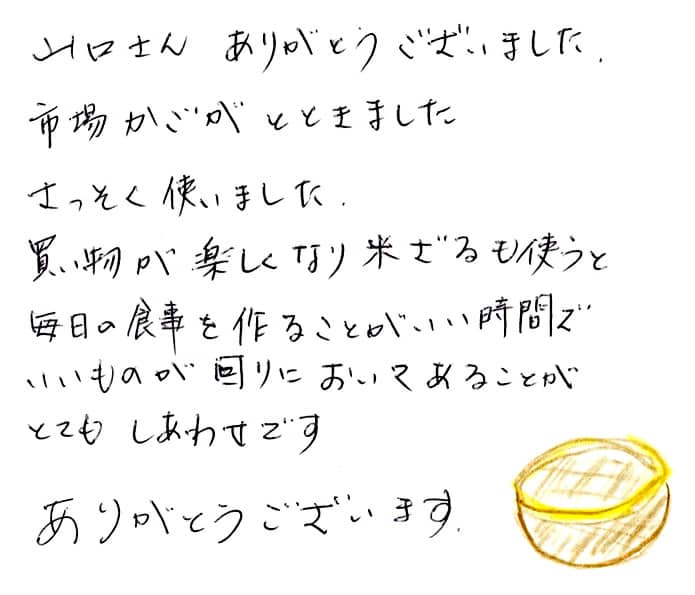 山口さん ありがとうございました.
市場かごがとときました
さっそく使いました.
買い物が楽しくなり米ざるも使うと
毎日の食事を作ることがいい時間で
いいものが回りにおいてあることが
とてもしあわせです
ありがとうございます.